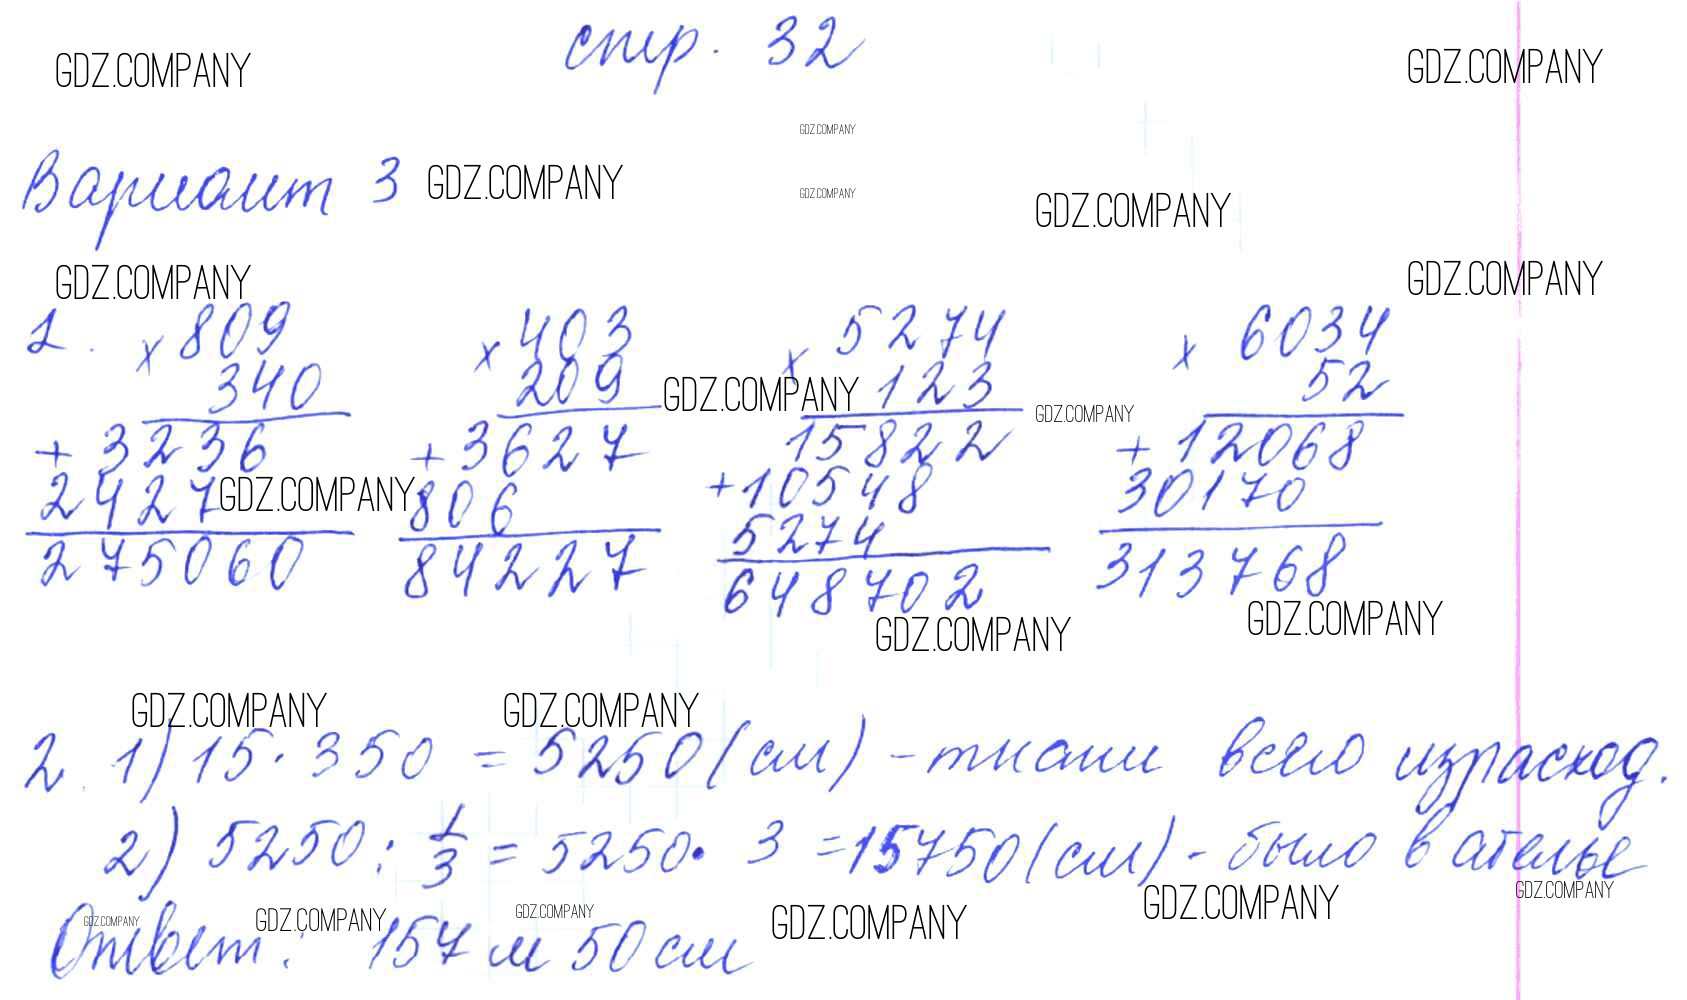 стр. 32
GDZ.COMPANY GDZ.COMPANY
GDZ.COMPANY
Вариант 3 GDZ.COMPANY GDZ.COMPANY GDZ.COMPANY
GDZ.COMPANY GDZ.COMPANY
1. × 809 × 403 × 5274 × 6034
340 209 123 52
GDZ.COMPANY GDZ.COMPANY
+ 3236 + 3627 15822 + 12068
2427 806 + 10548 30170
GDZ.COMPANY
5274
275060 84227 648702 313768
GDZ.COMPANY GDZ.COMPANY
GDZ.COMPANY GDZ.COMPANY
2. 1) 15 · 350 = 5250 (см) - ткани всего израсход.
2) 5250 : 1/3 = 5250 · 3 = 15750 (см) - было в ателье
GDZ.COMPANY GDZ.COMPANY GDZ.COMPANY GDZ.COMPANY GDZ.COMPANY GDZ.COMPANY
Ответ: 157 м 50 см